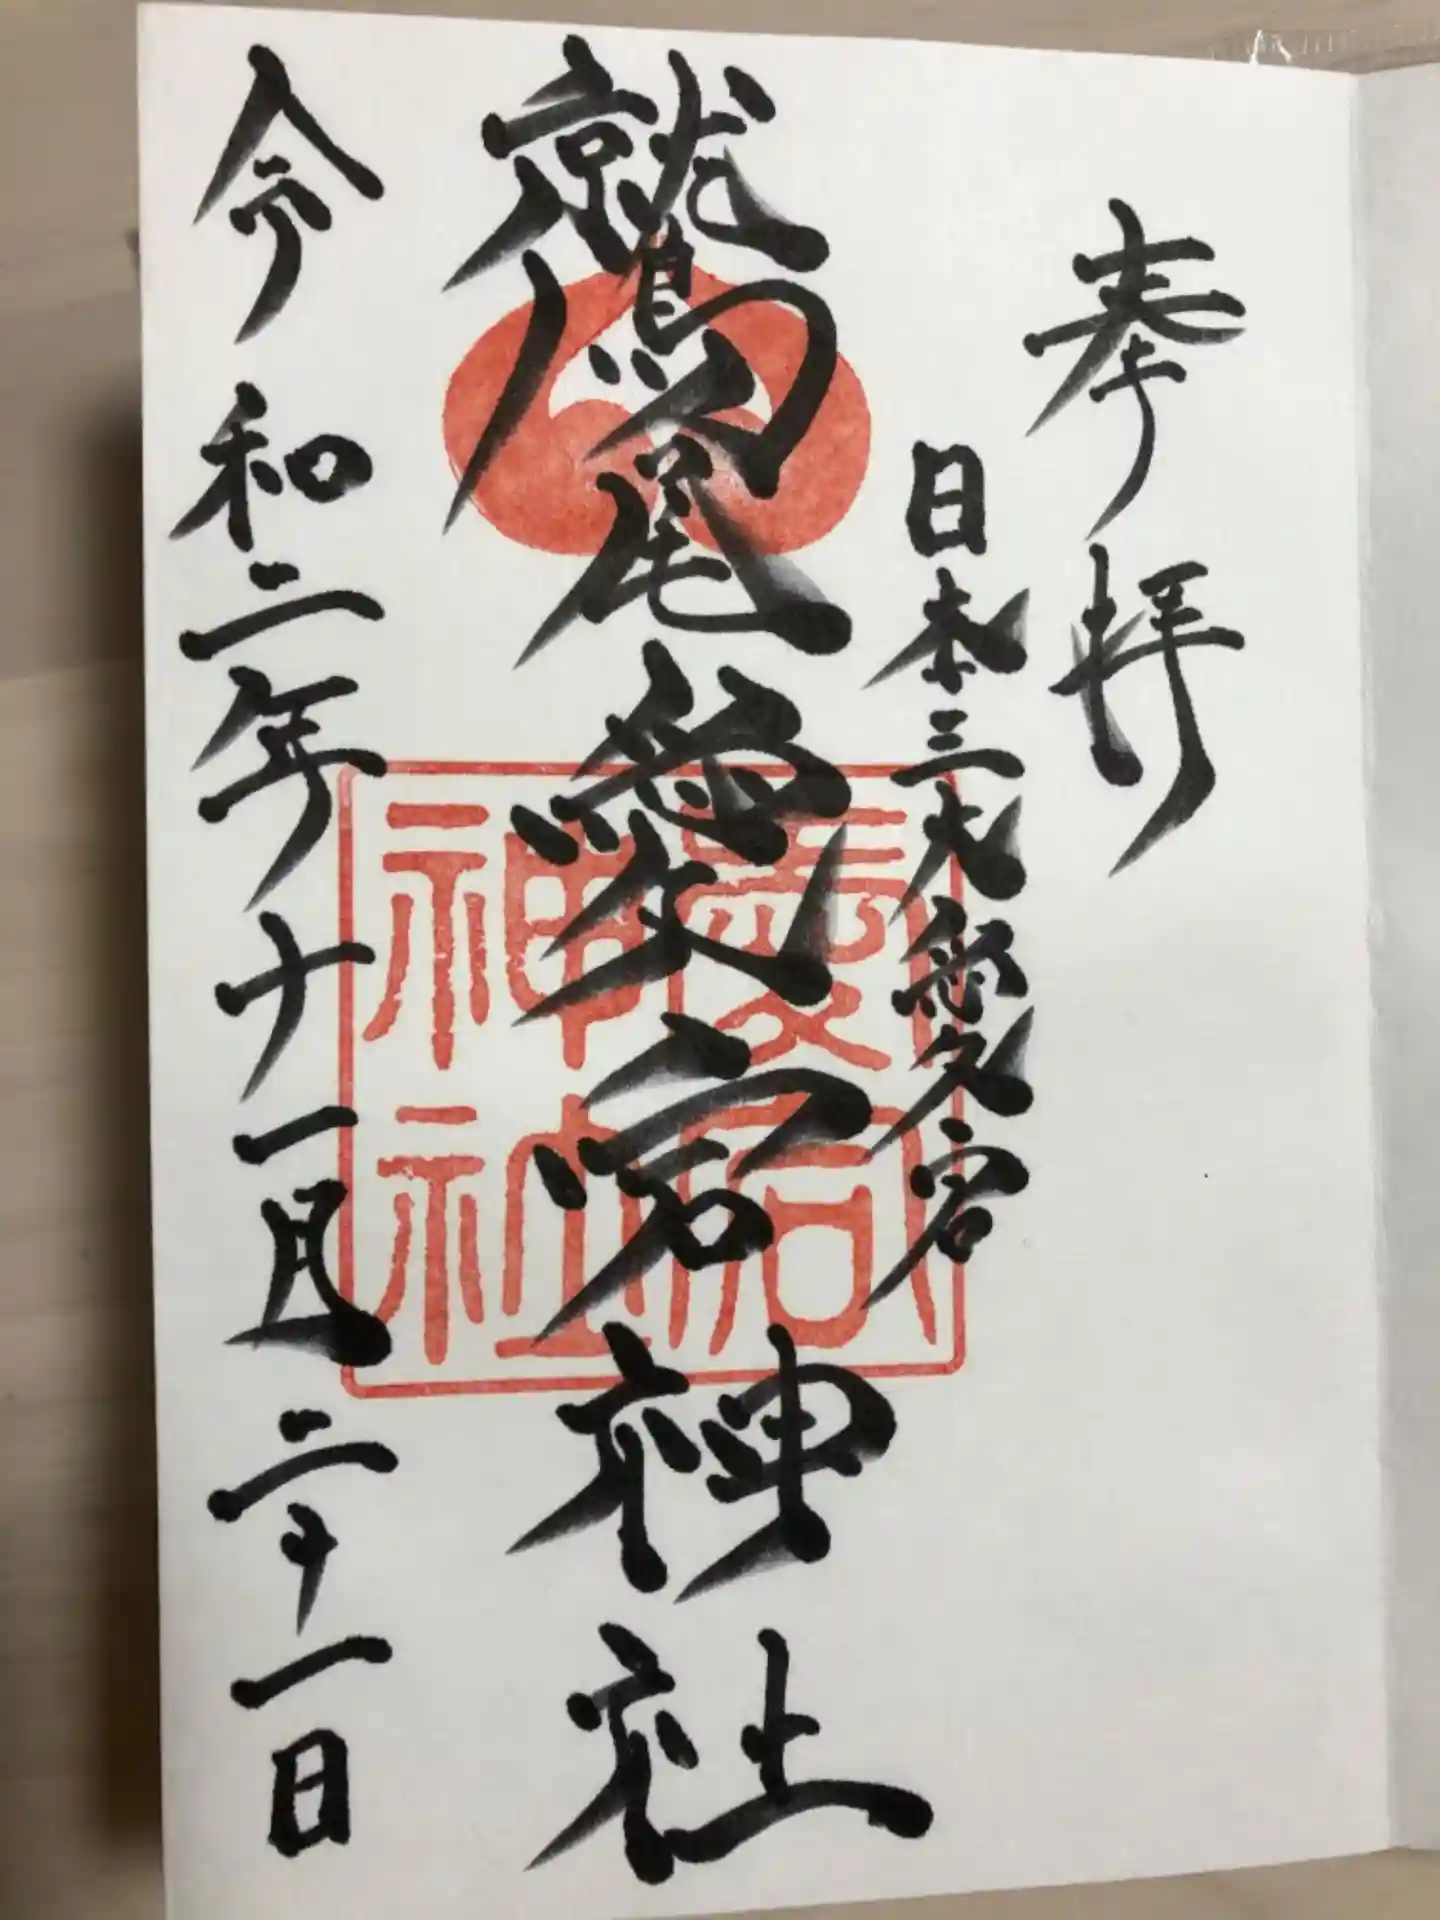 奉拝
日本三大愛宕
鷲尾愛宕神社
愛宕
神社
令和二年十一月二十一日